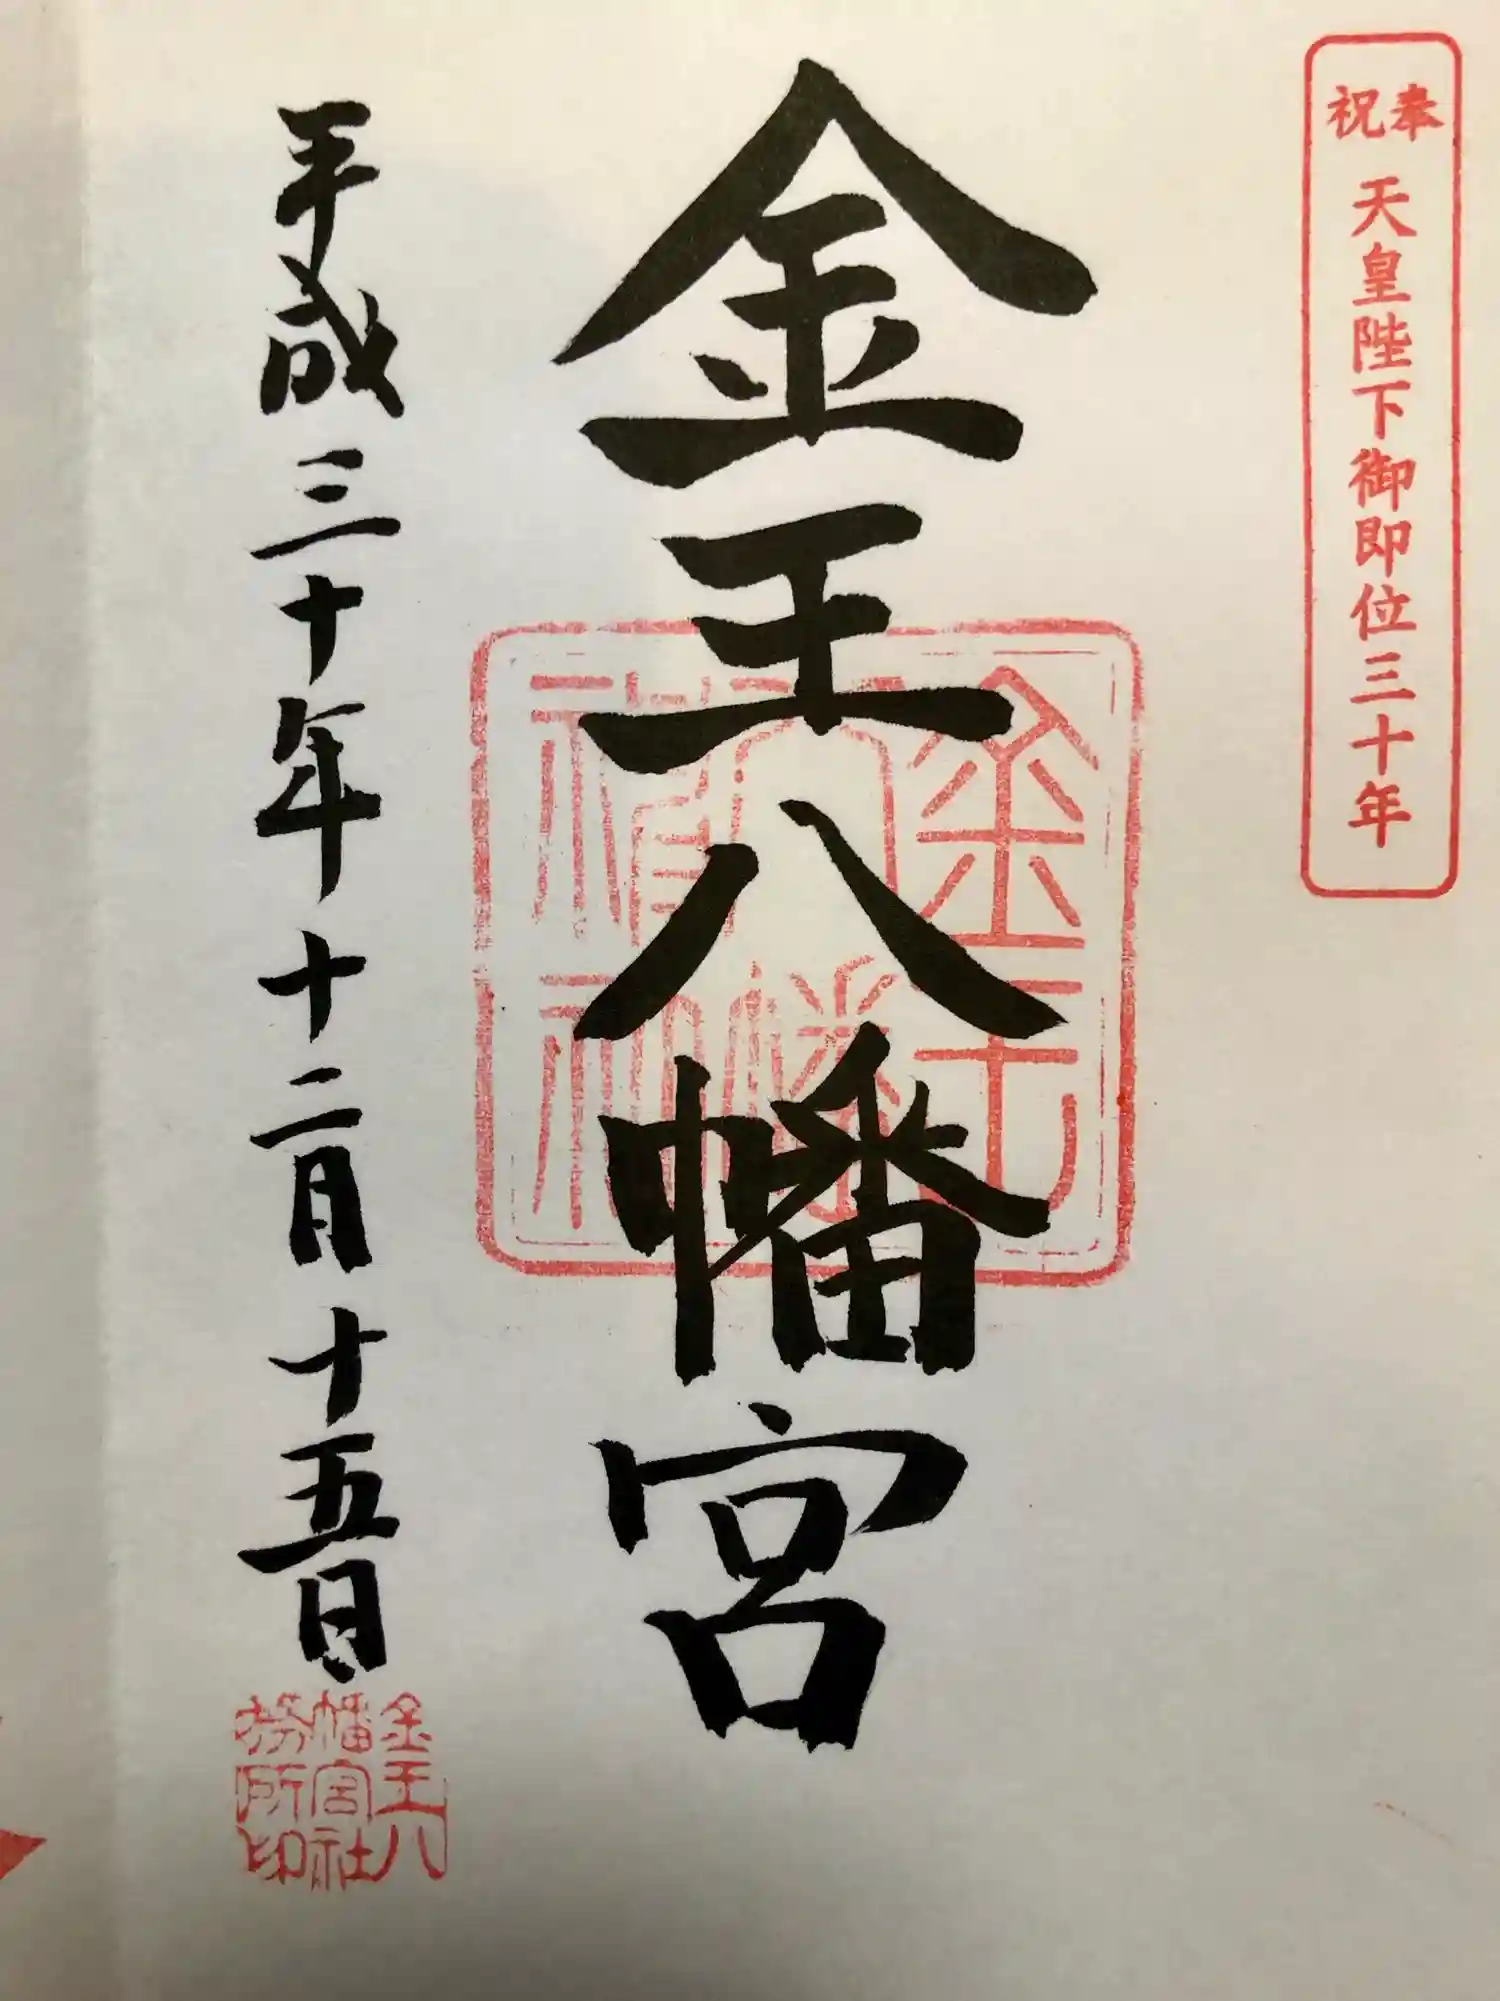 奉祝
天皇陛下御即位三十年
金王八幡宮
平成三十年十二月十五日
金王八
幡宮社
務所印